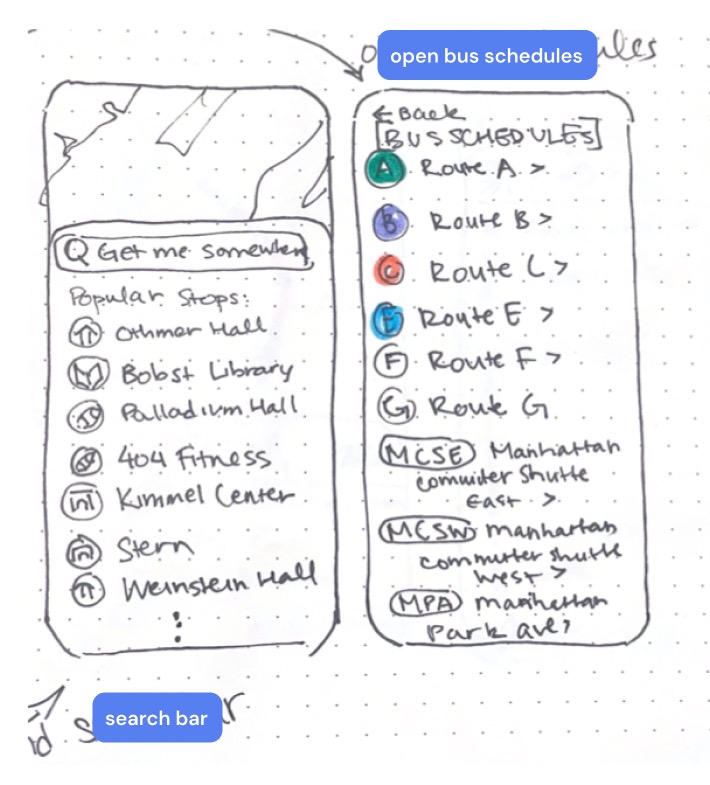 open bus schedules
← Back
[BUS SCHEDULES]
A Route A >
B Route B >
C Route C >
E Route E >
F Route F >
G Route G
MCSE Manhattan
commuter Shuttle
East >
MCSW Manhattan
commuter shuttle
West >
MPA Manhattan
Park ave >
Q Get me somewhere
Popular Stops:
Othmer Hall
Bobst Library
Palladium Hall
404 Fitness
Kimmel Center
Stern
Weinstein Hall
search bar